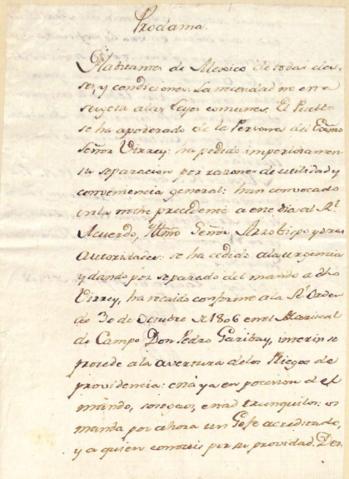 Proclama.
Habitantes de Mexico de todas cla-
ses, y condiciones. La necesidad no está
sugeta a las Leyes comunes. El Pueblo
se ha apoderado de la Persona del Exmo
Señor Virrey: ha pedido imperiosamen-
te su separacion por razones de utilidad y
conveniencia general: han convocado
en la noche precedente a este dia al Rl
Acuerdo, Illmo Señor Arzobispo y otras
autoridades: se ha cedido a la urgencia
y dando por separado del mando a dho
Virrey, ha recaido conforme a la Rl Orden
de 30 de Octubre de 1806 en el Mariscal
de Campo Don Pedro Garibay, interin se
procede a la avertura de los Pliegos de
providencia: está ya en posecion de el
mando, sosegaos, estad tranquilos: os
manda por ahora un Gefe acreditado,
y a quien conoceis por su providad. Des-